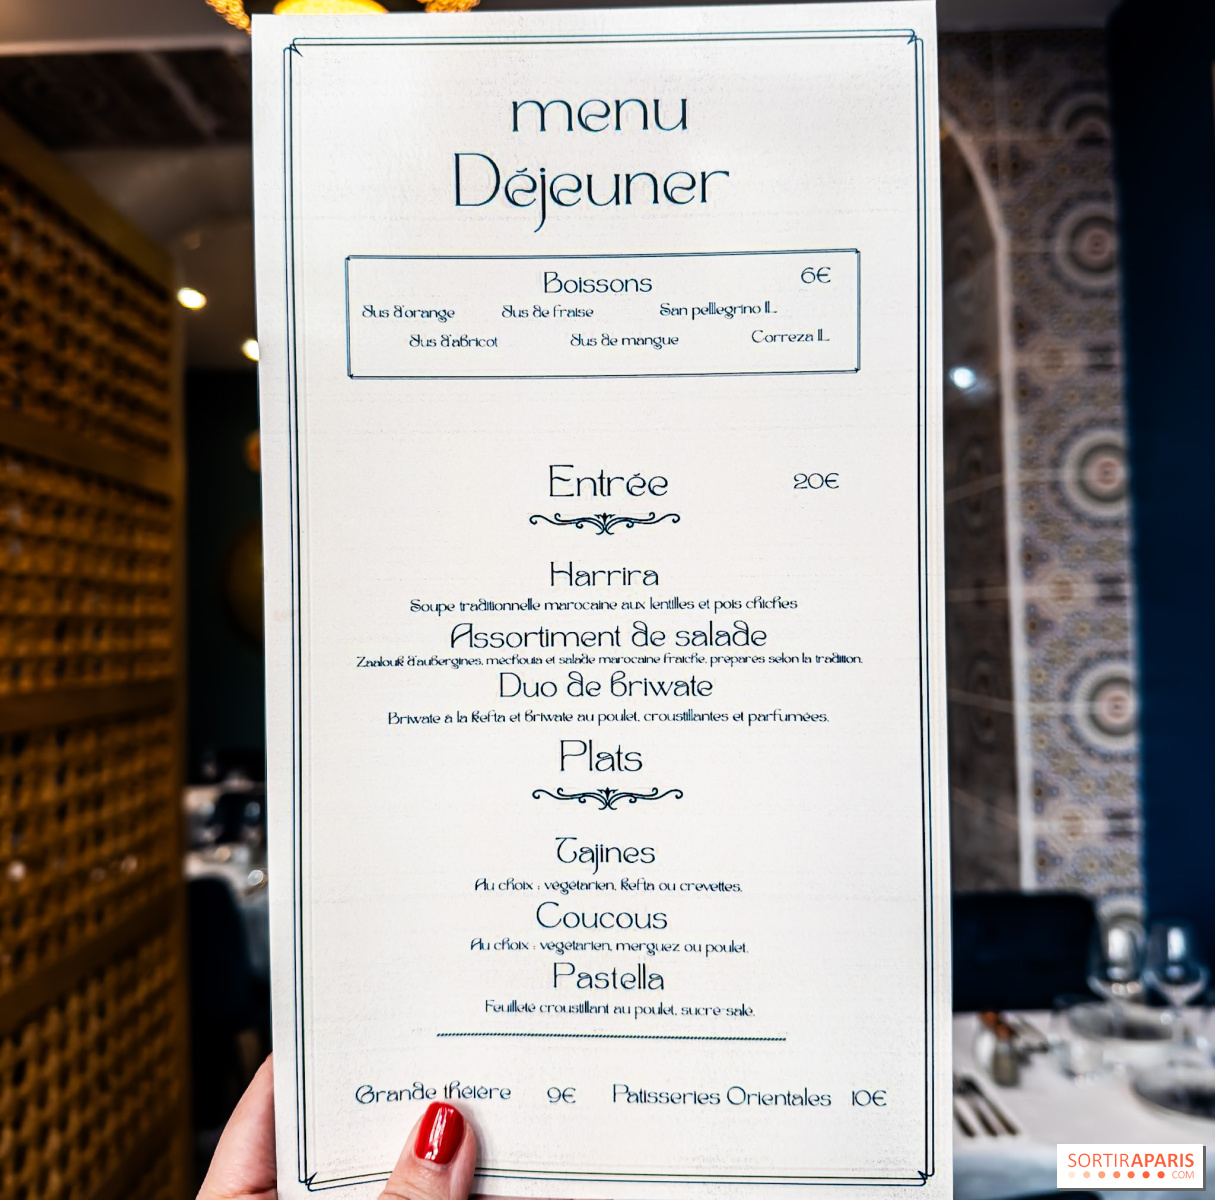 menu
Déjeuner
Boissons 6€
Jus d'orange Jus de fraise San pelllegrino 1L
Jus d'abricot Jus de mangue Correza 1L
Entrée 20€
Harrira
Soupe traditionnelle marocaine aux lentilles et pois chiches
Assortiment de salade
Zaalouk d'aubergines, mechouia et salade marocaine fraiche, préparés selon la tradition.
Duo de briwate
Briwate à la kefta et briwate au poulet, croustillantes et parfumées.
Plats
Tajines
Au choix : végétarien, kefta ou crevettes.
Coucous
Au choix : végétarien, merguez ou poulet.
Pastella
Feuilleté croustillant au poulet, sucré salé.
Grande théière 9€ Patisseries Orientales 10€
SORTIRAPARIS
.COM